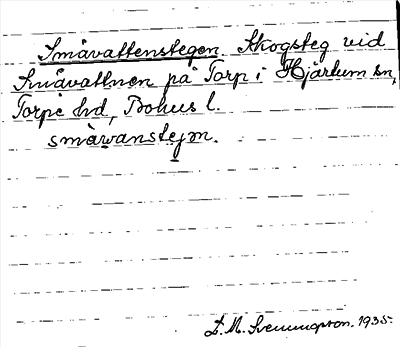 Småvattenstegen. Skogsteg vid
Småvattnen på Torp i Hjärtum sn,
Torpe hd, Bohus l.
småwanstejǝn.
D. M. Svenungsson. 1935.